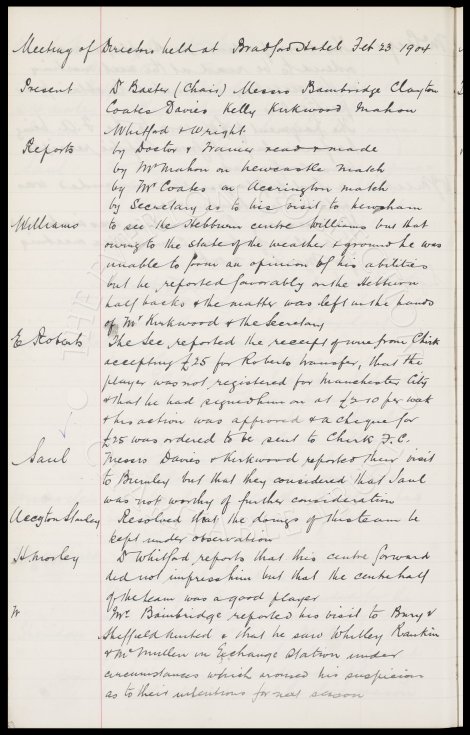 Meeting of Directors held at Bradford Hotel Feb 23 1904
Present Dr Baxter (Chair) Messrs Bainbridge Clayton
Coates Davies Kelly Kirkwood Mahon
Whitford & Wright
Reports by Doctor & Trainer read & made
by Mr Mahon on Newcastle match
by Mr Coates on Accrington match
by Secretary as to his visit to Newsham
Williams to see the Hebburn centre Williams but that
owing to the state of the weather & ground he was
unable to form an opinion of his abilities
but he reported favorably on the Hebburn
half backs & the matter was left in the hands
of Mr Kirkwood & the Secretary
E Roberts The Sec reported the receipt of wire from Chirk
accepting £25 for Roberts transfer, that the
player was not registered for Manchester City
& that he had signed him on at £2-10 per week
& his action was approved & a cheque for
£25 was ordered to be sent to Chirk F.C.
Saul Messrs Davies & Kirkwood reported their visit
to Burnley but that they considered that Saul
was not worthy of further consideration
Accgton Stanley Resolved that the doings of this team be
kept under observation
H Morley Dr Whitford reports that this centre forward
did not impress him but that the centre half
of the team was a good player
W Mr Bainbridge reported his visit to Bury v
Sheffield United & that he saw Whitley Rankin
& McMullen in Exchange Station under
circumstances which aroused his suspicion
as to their intentions for next season